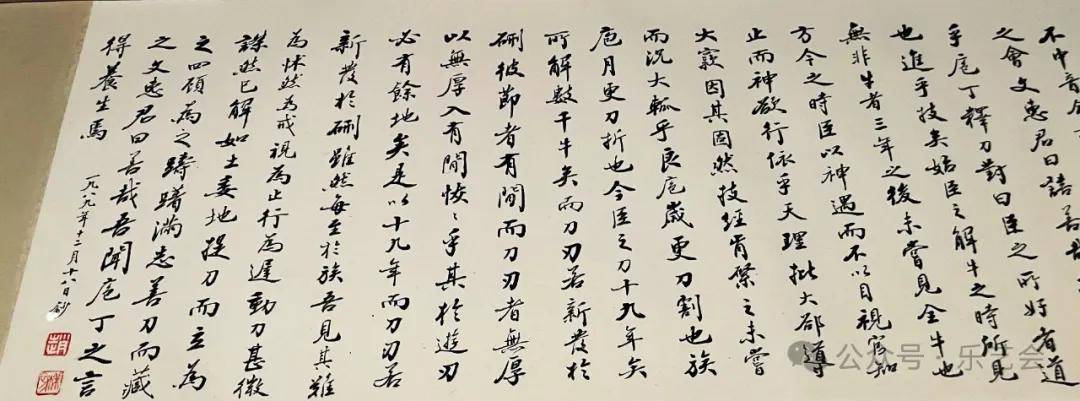 不中音
之會文惠君曰譆善哉
乎庖丁釋刀對曰臣之所好者道
也進乎技矣始臣之解牛之時所見
無非牛者三年之後未嘗見全牛也
方今之時臣以神遇而不以目視官知
止而神欲行依乎天理批大郤導
大窾因其固然技經肯綮之未嘗
而況大軱乎良庖歲更刀割也族
庖月更刀折也今臣之刀十九年矣
所解數千牛矣而刀刃若新發於
硎彼節者有間而刀刃者無厚
以無厚入有間恢々乎其於遊刃
必有餘地矣是以十九年而刀刃若
新發於硎雖然每至於族吾見其難
為怵然為戒視為止行為遲動刀甚微
謋然已解如土委地提刀而立為
之四顧為之躊躇滿志善刀而藏
之文惠君曰善哉吾聞庖丁之言
得養生焉
一九八九年十二月十八日鈔
趙
公众号·乐艺会